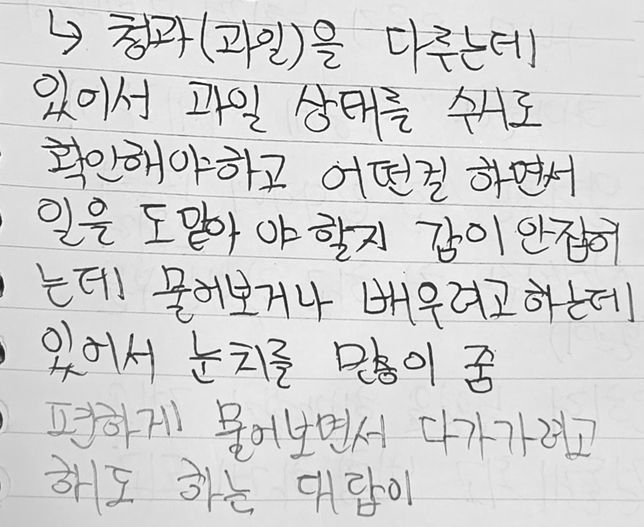 ↳ 청과(과일)을 다루는데
있어서 과일 상태를 수시로
확인해야하고 어떤걸 하면서
일을 도맡아 야 할지 감이 안잡혀
는데 물어보거나 배우려고하는데
있어서 눈치를 많이 줌
편하게 물어보면서 다가가려고
해도 하는 대답이